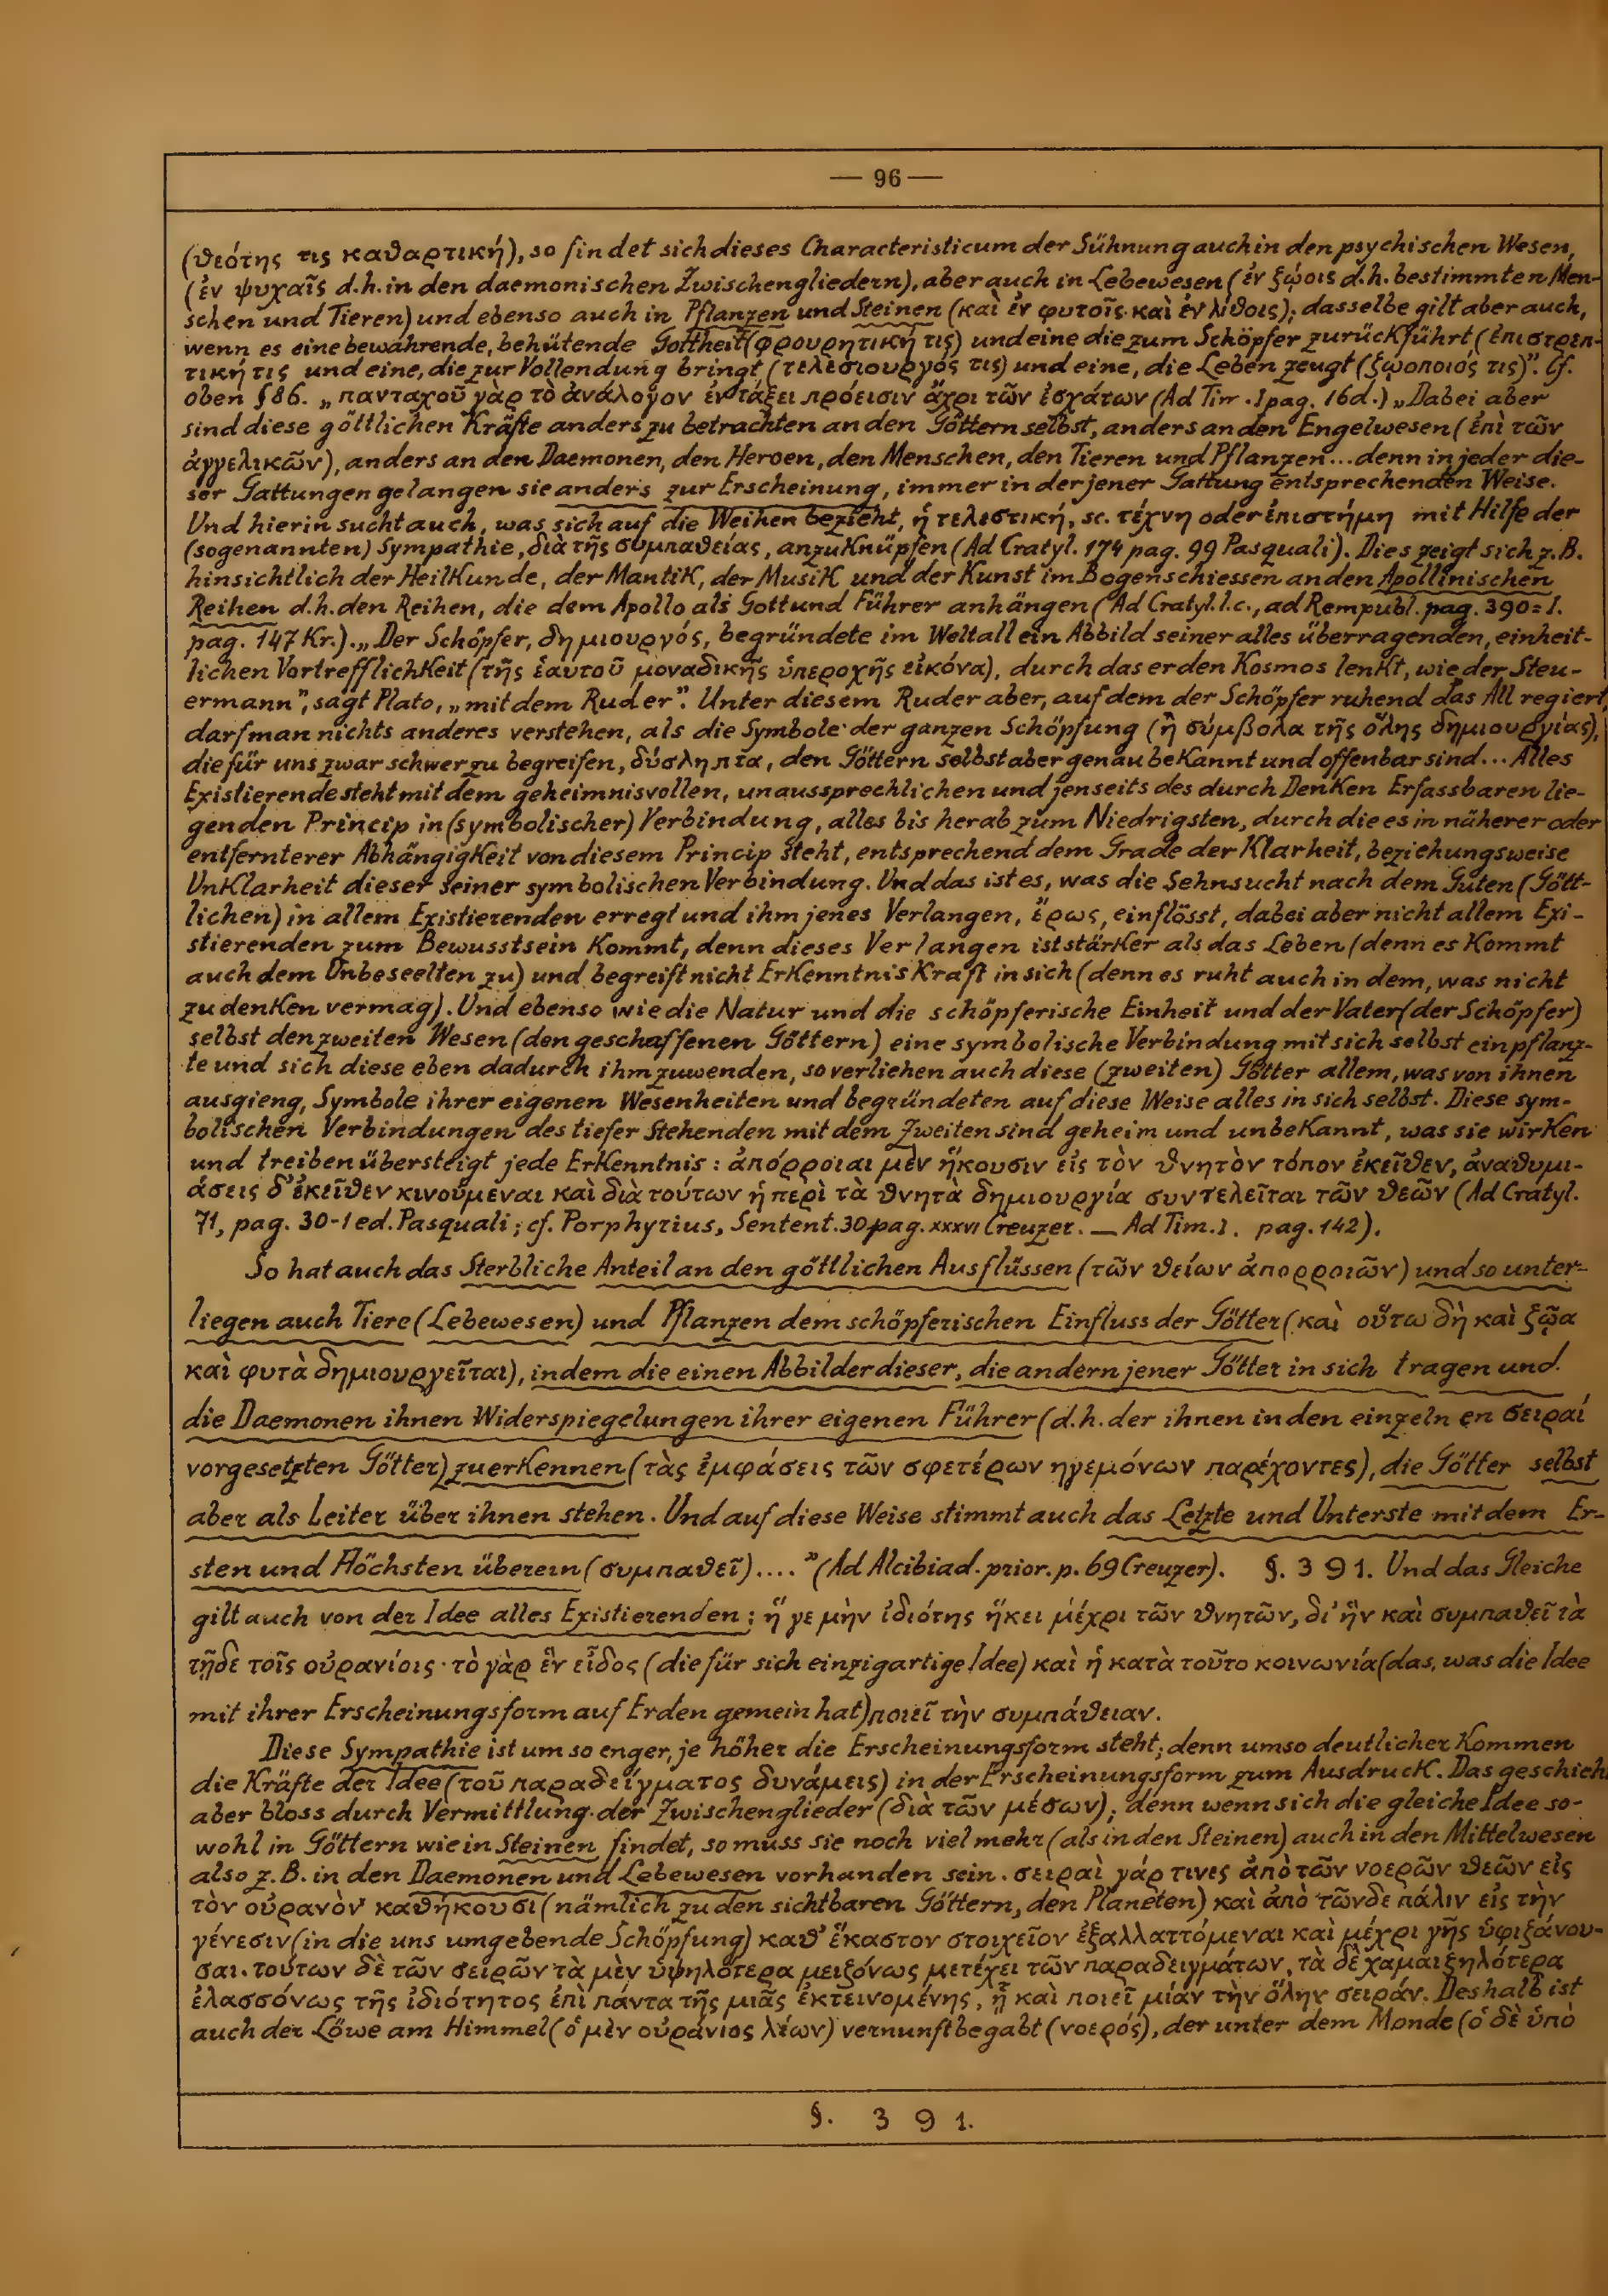 — 96 —
(θεότης τις καθαρτική), so findet sich dieses Characteristicum der Sühnung auch in den psychischen Wesen,
(ἐν ψυχαῖς d.h. in den daemonischen Zwischengliedern), aber auch in Lebewesen (ἐν ζῴοις d.h. bestimmten Men-
schen und Tieren) und ebenso auch in Pflanzen und Steinen (καὶ ἐν φυτοῖς καὶ ἐν λίθοις); dasselbe gilt aber auch,
wenn es eine bewahrende, behütende Gottheit (φρουρητική τις) und eine die zum Schöpfer zurückführt (ἐπιστρεπ-
τική τις und eine, die zur Vollendung bringt (τελεσιουργός τις) und eine, die Leben zeugt (ζῳοποιός τις)". Cf.
oben §86. „πανταχοῦ γὰρ τὸ ἀνάλογον ἐν τάξει πρόεισιν ἄχρι τῶν ἐσχάτων (Ad Tim. I pag. 16d.) „Dabei aber
sind diese göttlichen Kräfte anders zu betrachten an den Göttern selbst, anders an den Engelwesen (ἐπὶ τῶν
ἀγγελικῶν), anders an den Daemonen, den Heroen, den Menschen, den Tieren und Pflanzen... denn in jeder die-
ser Gattungen gelangen sie anders zur Erscheinung, immer in der jener Gattung entsprechenden Weise.
Und hierin sucht auch, was sich auf die Weihen bezieht, ἡ τελεστική, sc. τέχνη oder ἐπιστήμη mit Hilfe der
(sogenannten) Sympathie, διὰ τῆς συμπαθείας, anzuknüpfen (Ad Cratyl. 174 pag. 99 Pasquali). Dies zeigt sich z.B.
hinsichtlich der Heilkunde, der Mantik, der Musik und der Kunst im Bogenschiessen an den Apollinischen
Reihen d.h. den Reihen, die dem Apollo als Gott und Führer anhängen (Ad Cratyl. l.c., ad Rempubl. pag. 390=I.
pag. 147 Kr.). „Der Schöpfer, δημιουργός, begründete im Weltall ein Abbild seiner alles überragenden, einheit-
lichen Vortrefflichkeit (τῆς ἑαυτοῦ μοναδικῆς ὑπεροχῆς εἰκόνα), durch das er den Kosmos lenkt, wie der Steu-
ermann", sagt Plato, „mit dem Ruder". Unter diesem Ruder aber, auf dem der Schöpfer ruhend das All regiert,
darf man nichts anderes verstehen, als die Symbole der ganzen Schöpfung (ἢ σύμβολα τῆς ὅλης δημιουργίας),
die für uns zwar schwer zu begreifen, δύσληπτα, den Göttern selbst aber genau bekannt und offenbar sind... Alles
Existierende steht mit dem geheimnisvollen, unaussprechlichen und jenseits des durch Denken Erfassbaren lie-
genden Princip in (symbolischer) Verbindung, alles bis herab zum Niedrigsten, durch die es in näherer oder
entfernterer Abhängigkeit von diesem Princip steht, entsprechend dem Grade der Klarheit, beziehungsweise
Unklarheit dieser seiner symbolischen Verbindung. Und das ist es, was die Sehnsucht nach dem Guten (Gött-
lichen) in allem Existierenden erregt und ihm jenes Verlangen, ἔρως, einflösst, dabei aber nicht allem Exi-
stierenden zum Bewusstsein kommt, denn dieses Verlangen ist stärker als das Leben (denn es kommt
auch dem Unbeseelten zu) und begreift nicht Erkenntniskraft in sich (denn es ruht auch in dem, was nicht
zu denken vermag). Und ebenso wie die Natur und die schöpferische Einheit und der Vater (der Schöpfer)
selbst den zweiten Wesen (den geschaffenen Göttern) eine symbolische Verbindung mit sich selbst einpflanz-
te und sich diese eben dadurch ihm zuwenden, so verliehen auch diese (zweiten) Götter allem, was von ihnen
ausgieng, Symbole ihrer eigenen Wesenheiten und begründeten auf diese Weise alles in sich selbst. Diese sym-
bolischen Verbindungen des tiefer Stehenden mit dem Zweiten sind geheim und unbekannt, was sie wirken
und treiben übersteigt jede Erkenntnis: ἀπόρροιαι μὲν ἥκουσιν εἰς τὸν θνητὸν τόπον ἐκεῖθεν, ἀναθυμι-
άσεις δ' ἐκεῖθεν κινούμεναι καὶ διὰ τούτων ἡ περὶ τὰ θνητὰ δημιουργία συντελεῖται τῶν θεῶν (Ad Cratyl.
71, pag. 30-1 ed. Pasquali; cf. Porphyrius, Sentent. 30 pag. XXXVI Creuzer. — Ad Tim. I. pag. 142).
So hat auch das Sterbliche Anteil an den göttlichen Ausflüssen (τῶν θείων ἀπορροιῶν) und so unter-
liegen auch Tiere (Lebewesen) und Pflanzen dem schöpferischen Einfluss der Götter (καὶ οὕτω δὴ καὶ ζῷα
καὶ φυτὰ δημιουργεῖται), indem die einen Abbilder dieser, die andern jener Götter in sich tragen und
die Daemonen ihnen Widerspiegelungen ihrer eigenen Führer (d.h. der ihnen in den einzelnen σειραί
vorgesetzten Götter) zuerkennen (τὰς ἐμφάσεις τῶν σφετέρων ἡγεμόνων παρέχοντες), die Götter selbst
aber als Leiter über ihnen stehen. Und auf diese Weise stimmt auch das Letzte und Unterste mit dem Er-
sten und Höchsten überein (συμπαθεῖ)...." (Ad Alcibiad. prior. p. 69 Creuzer). §. 391. Und das Gleiche
gilt auch von der Idee alles Existierenden: ἥ γε μὴν ἰδιότης ἥκει μέχρι τῶν θνητῶν, δι' ἣν καὶ συμπαθεῖ τὰ
τῇδε τοῖς οὐρανίοις· τὸ γὰρ ἓν εἶδος (die für sich einzigartige Idee) καὶ ἡ κατὰ τοῦτο κοινωνία (das, was die Idee
mit ihrer Erscheinungsform auf Erden gemein hat) ποιεῖ τὴν συμπάθειαν.
Diese Sympathie ist um so enger, je höher die Erscheinungsform steht; denn umso deutlicher kommen
die Kräfte der Idee (τοῦ παραδείγματος δυνάμεις) in der Erscheinungsform zum Ausdruck. Das geschieh
aber bloss durch Vermittlung der Zwischenglieder (διὰ τῶν μέσων); denn wenn sich die gleiche Idee so-
wohl in Göttern wie in Steinen findet, so muss sie noch viel mehr (als in den Steinen) auch in den Mittelwesen
also z.B. in den Daemonen und Lebewesen vorhanden sein. σειραὶ γάρ τινες ἀπὸ τῶν νοερῶν θεῶν εἰς
τὸν οὐρανὸν καθήκουσι (nämlich zu den sichtbaren Göttern, den Planeten) καὶ ἀπὸ τῶνδε πάλιν εἰς τὴν
γένεσιν (in die uns umgebende Schöpfung) καθ' ἕκαστον στοιχεῖον ἐξαλλαττόμεναι καὶ μέχρι γῆς ὑφιζάνου-
σαι. τούτων δὲ τῶν σειρῶν τὰ μὲν ὑψηλότερα μειζόνως μετέχει τῶν παραδειγμάτων, τὰ δὲ χαμαιζηλότερα
ἐλασσόνως τῆς ἰδιότητος ἐπὶ πάντα τῆς μιᾶς ἐκτεινομένης, ᾗ καὶ ποιεῖ μίαν τὴν ὅλην σειράν. Deshalb ist
auch der Löwe am Himmel (ὁ μὲν οὐράνιος λέων) vernunftbegabt (νοερός), der unter dem Monde (ὁ δὲ ὑπὸ
§. 391.